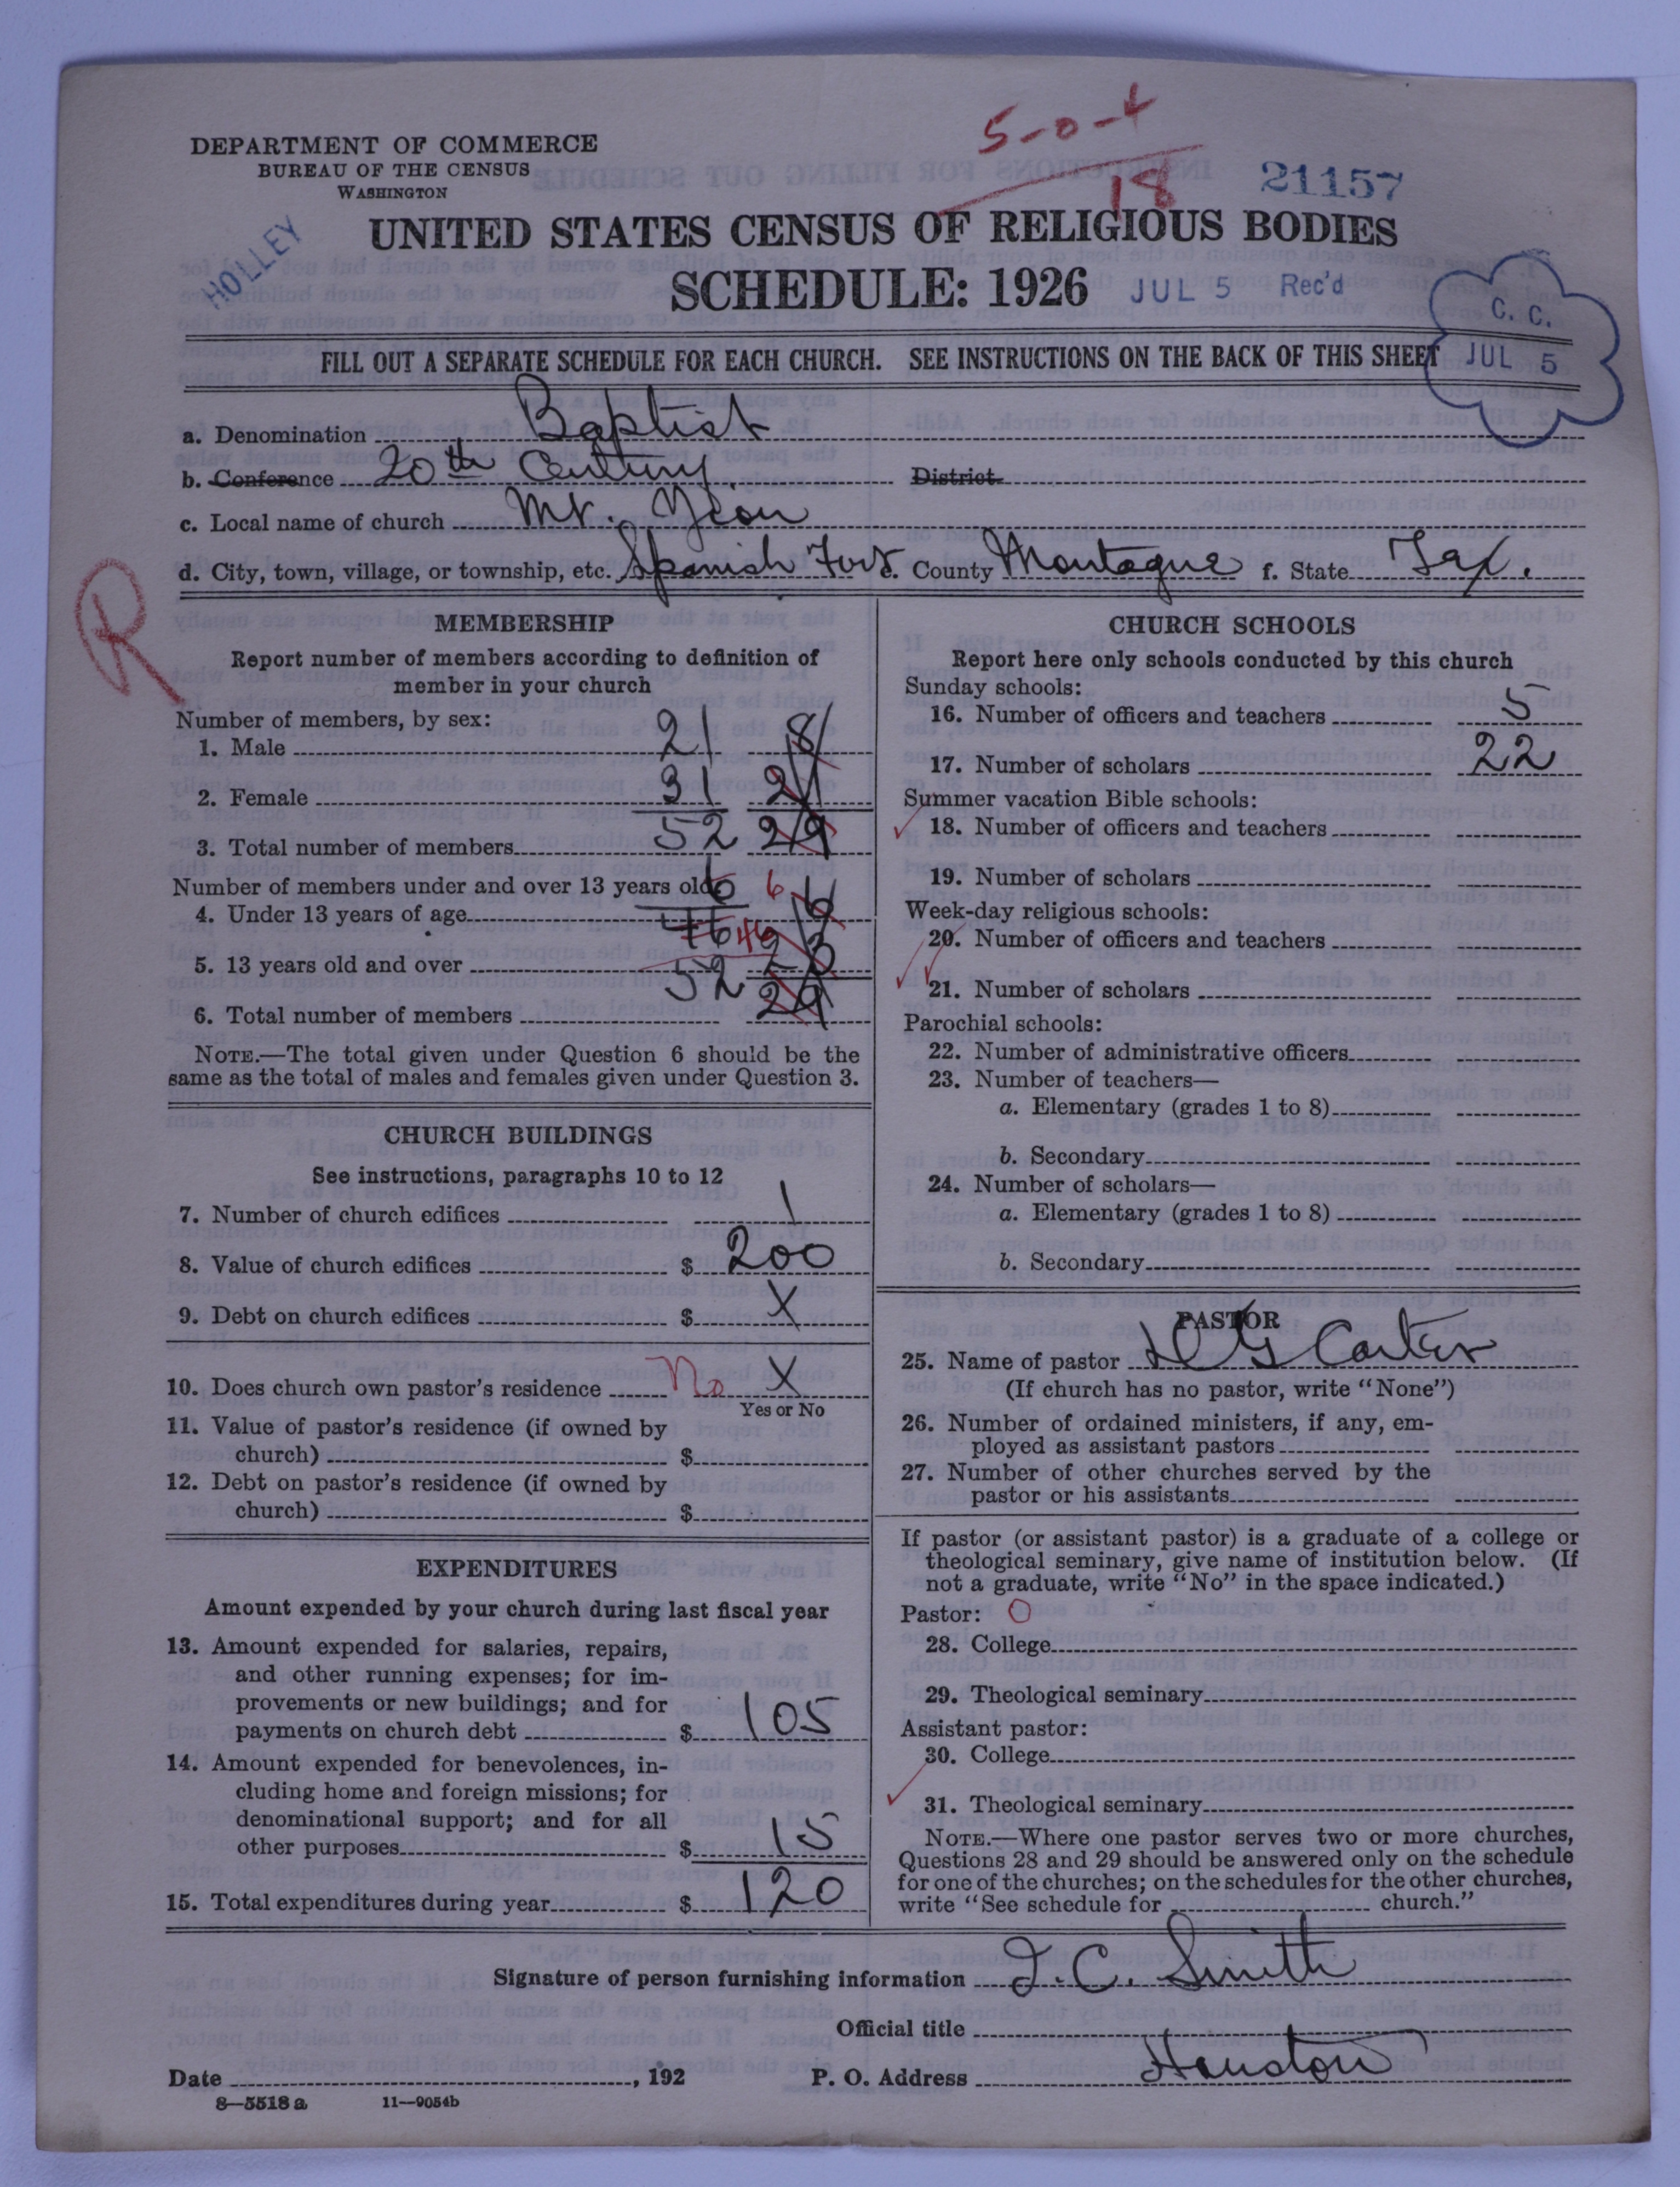 5-0-4
18
21157
DEPARTMENT OF COMMERCE
BUREAU OF THE CENSUS
WASHINGTON
HOLLEY
UNITED STATES CENSUS OF RELIGIOUS BODIES
SCHEDULE: 1926
JUL 5 Rec'd
C. C.
JUL 5
FILL OUT A SEPARATE SCHEDULE FOR EACH CHURCH. SEE INSTRUCTIONS ON THE BACK OF THIS SHEET
a. Denomination Baptist
b. Conference 20th Century District
c. Local name of church Mt. Zion
d. City, town, village, or township, etc. Spanish Fort e. County Montague f. State Tex.
R
MEMBERSHIP
Report number of members according to definition of
member in your church
Number of members, by sex:
1. Male 21 8
2. Female 31 21
3. Total number of members 52 29
Number of members under and over 13 years old:
4. Under 13 years of age 6 6 6
5. 13 years old and over 46 46 23
6. Total number of members 52 29
NOTE.—The total given under Question 6 should be the
same as the total of males and females given under Question 3.
CHURCH BUILDINGS
See instructions, paragraphs 10 to 12
7. Number of church edifices 1
8. Value of church edifices $ 200
9. Debt on church edifices $ X
10. Does church own pastor's residence No X
Yes or No
11. Value of pastor's residence (if owned by
church) $
12. Debt on pastor's residence (if owned by
church) $
EXPENDITURES
Amount expended by your church during last fiscal year
13. Amount expended for salaries, repairs,
and other running expenses; for im-
provements or new buildings; and for
payments on church debt $ 105
14. Amount expended for benevolences, in-
cluding home and foreign missions; for
denominational support; and for all
other purposes $ 15
15. Total expenditures during year $ 120
CHURCH SCHOOLS
Report here only schools conducted by this church
Sunday schools:
16. Number of officers and teachers 5
17. Number of scholars 22
Summer vacation Bible schools:
18. Number of officers and teachers
19. Number of scholars
Week-day religious schools:
20. Number of officers and teachers
21. Number of scholars
Parochial schools:
22. Number of administrative officers
23. Number of teachers—
a. Elementary (grades 1 to 8)
b. Secondary
24. Number of scholars—
a. Elementary (grades 1 to 8)
b. Secondary
PASTOR
25. Name of pastor G Carter
(If church has no pastor, write "None")
26. Number of ordained ministers, if any, em-
ployed as assistant pastors
27. Number of other churches served by the
pastor or his assistants
If pastor (or assistant pastor) is a graduate of a college or
theological seminary, give name of institution below. (If
not a graduate, write "No" in the space indicated.)
Pastor: O
28. College
29. Theological seminary
Assistant pastor:
30. College
31. Theological seminary
NOTE.—Where one pastor serves two or more churches,
Questions 28 and 29 should be answered only on the schedule
for one of the churches; on the schedules for the other churches,
write "See schedule for church."
Signature of person furnishing information J. C. Smith
Official title
Date , 192 P. O. Address Houston
8—5518 a 11—9054b